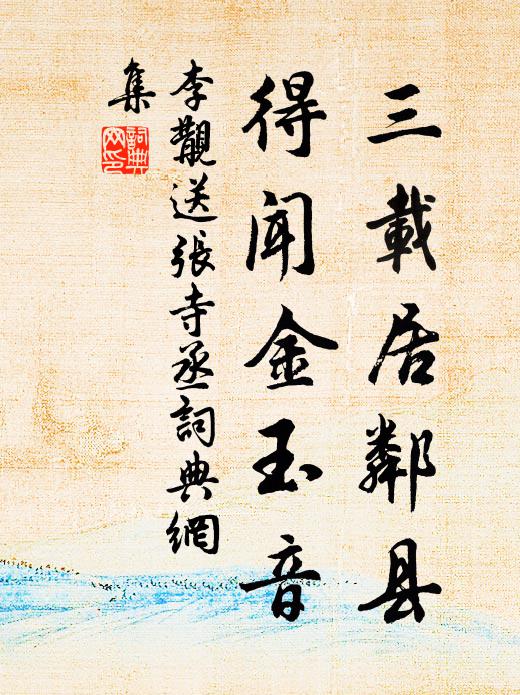 三載居鄰县
得闻金玉音
李覯送張寺丞詞典網
集
詞典网印